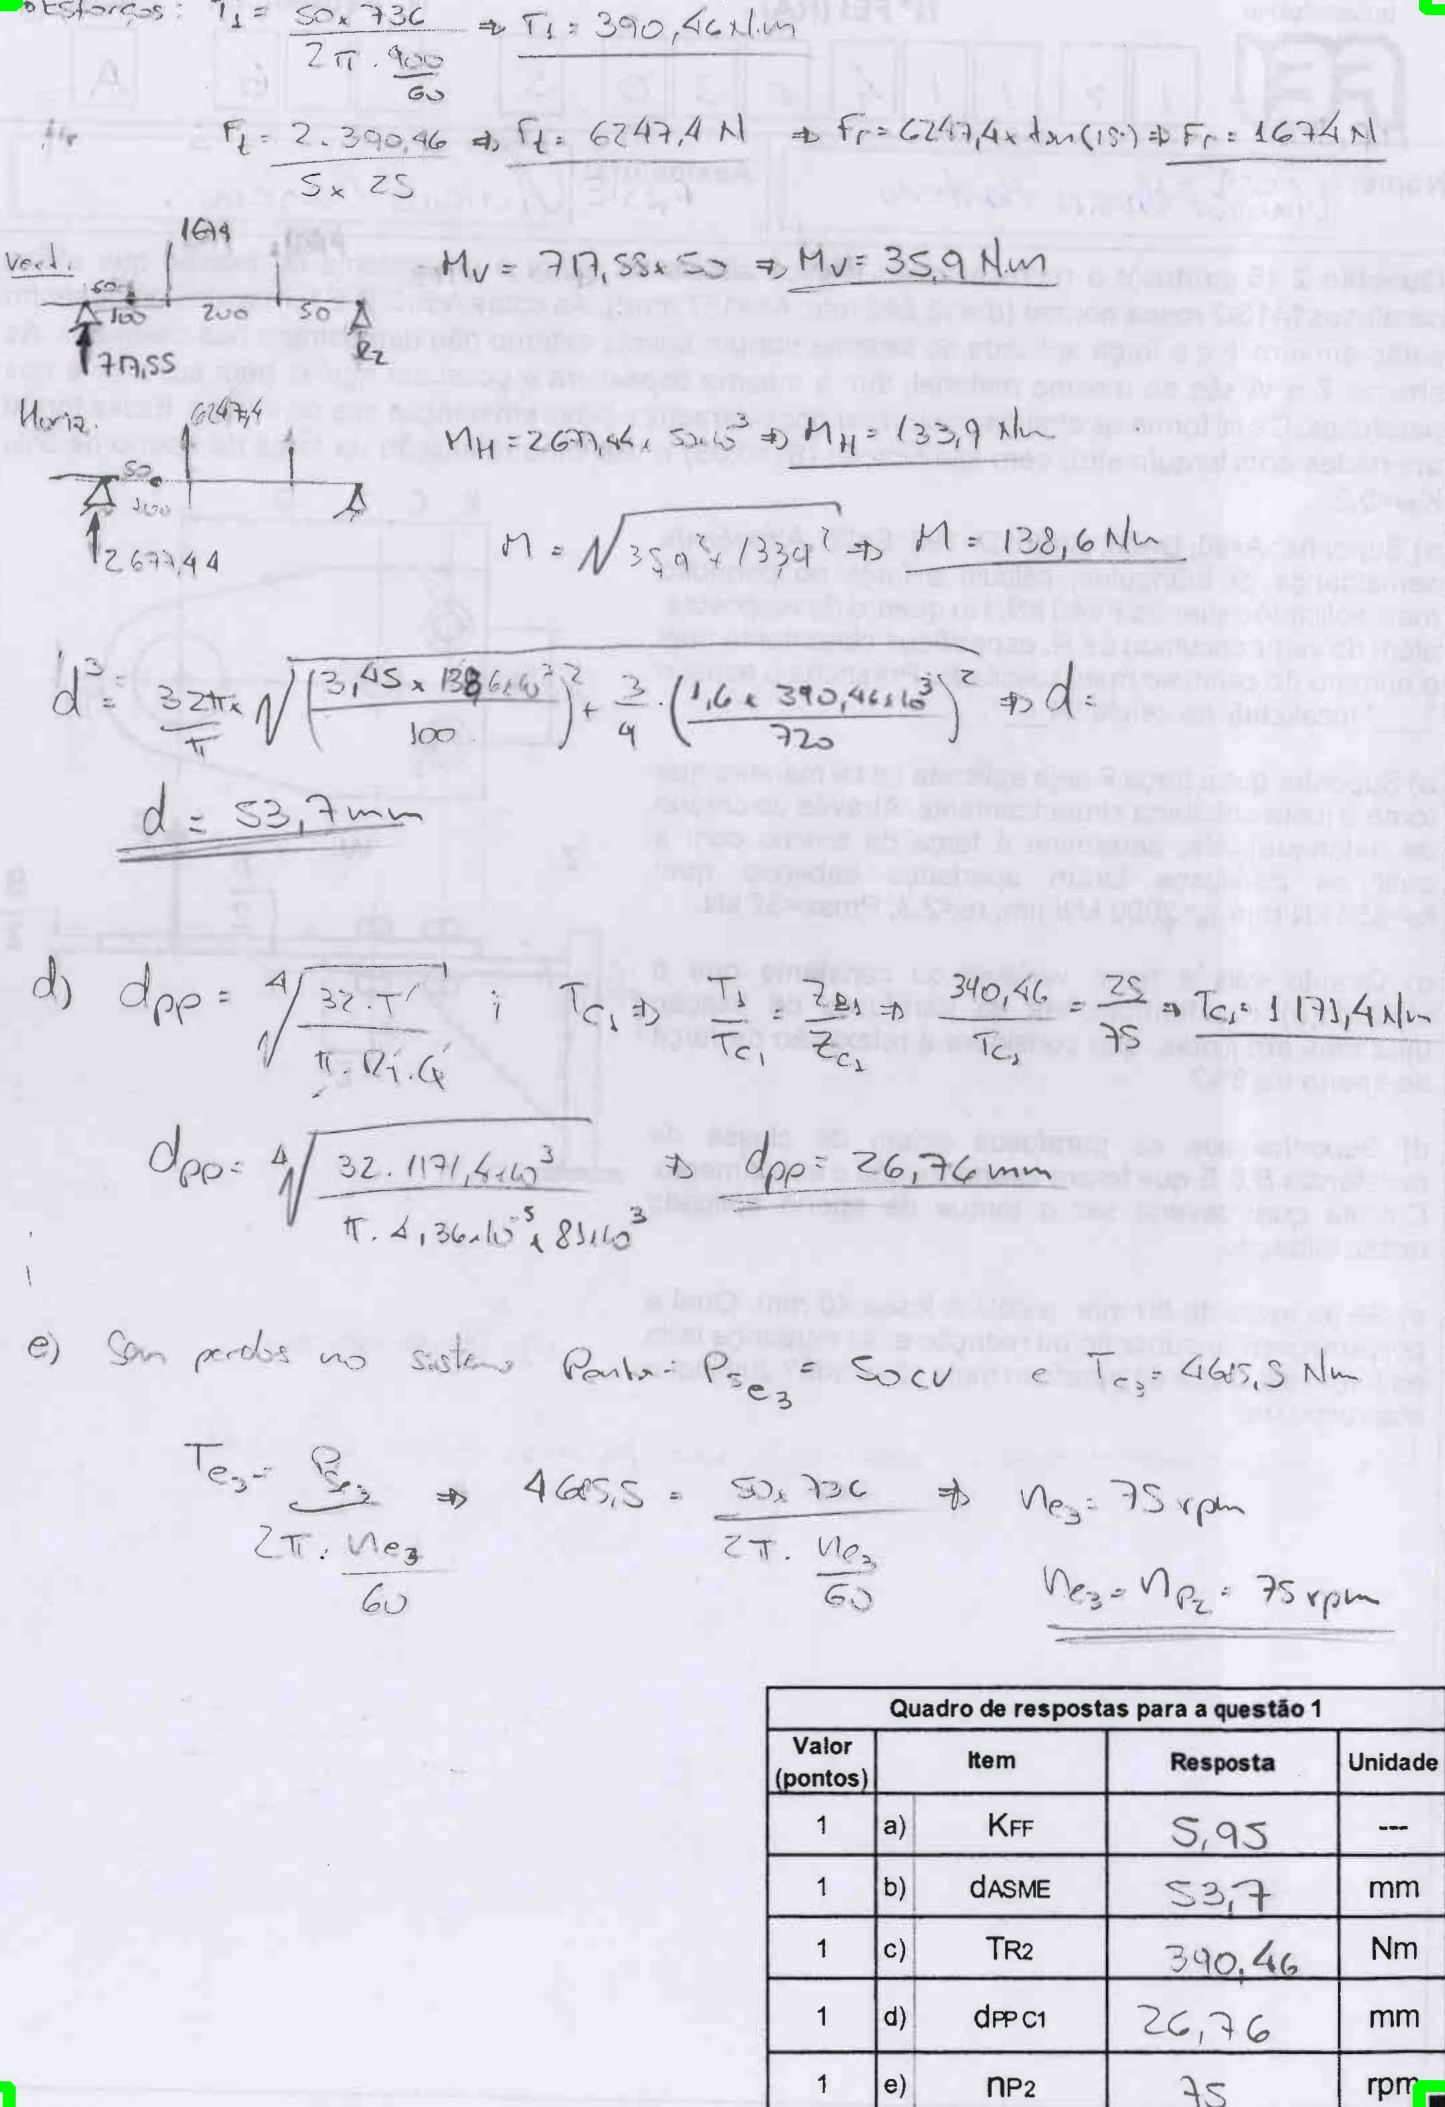 Esforços: T1 = 50 x 736 / 2π . 900/60 ⇒ T1 = 390,46 N.m
Ft = 2 . 390,46 / 5 x 25 ⇒ Ft = 6247,4 N ⇒ Fr = 6247,4 x tan(15°) ⇒ Fr = 1674 N
Vert.
1674
50
100 200 50
717,55
R2
Mv = 717,55 x 50 ⇒ Mv = 35,9 N.m
Horiz.
6247,4
50
100
2677,44
MH = 2677,44 x 50x10^-3 ⇒ MH = 133,9 Nm
M = √(35,9² + 133,9²) ⇒ M = 138,6 Nm
d³ = 32 x / π √((3,45 x 138,6x10³ / 100)² + 3/4 . (1,6 x 390,46x10³ / 720)²) ⇒ d =
d = 53,7 mm
d) dpp = ⁴√(32 . T / π . . G) ; TC1 ⇒ T1 / TC1 = ZB1 / ZC1 ⇒ 390,46 / TC1 = 25 / 75 ⇒ TC1 = 1171,4 Nm
dpp = ⁴√(32 . 1171,4x10³ / π . 4,36x10^-5 x 81x10³) ⇒ dpp = 26,76 mm
e) Sem perdas no sistema Pse3 = 50cv e Te3 = 4685,5 Nm
Te3 = Pse3 / 2π . ne3/60 ⇒ 4685,5 = 50 x 736 / 2π . ne3/60 ⇒ ne3 = 75 rpm
ne3 = nP2 = 75 rpm
Quadro de respostas para a questão 1
Valor (pontos) Item Resposta Unidade
1 a) KFF 5,95 ---
1 b) dASME 53,7 mm
1 c) TR2 390,46 Nm
1 d) dPP C1 26,76 mm
1 e) nP2 75 rpm